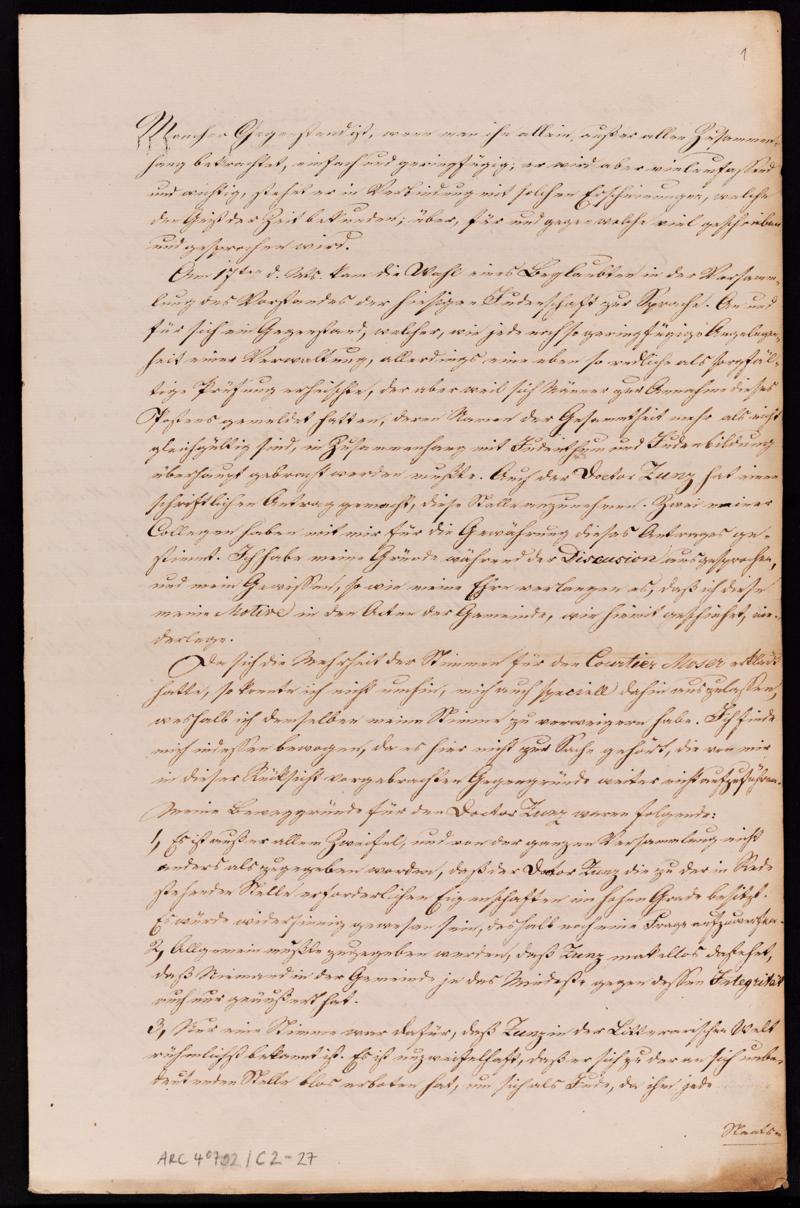 1
Mancher Gegenstand ist, wenn man ihn allein, außer allen Zusammen-
hang betrachtet, einfach und geringfügig; er wird aber vielumfassend
und wichtig, stehet er in Verbindung mit solchen Erscheinungen, welche
den Geist der Zeit bekunden; über, für und gegen welche viel geschrieben
und gesprochen wird.
Am 17ten d. Mts. kam die Wahl eines Beglaubten in der Versamm-
lung des Vorstandes der hiesigen Judenschaft zur Sprache. An und
für sich ein Gegenstand, welcher, wie jede noch so geringfügige Angelegen-
heit einer Verwaltung, allerdings eine eben so redliche als sorgfäl-
tige Prüfung erheischte, der aber weil sich Männer zur Annahme dieses
Postens gemeldet hatten, deren Namen der Gesammtheit mehr als nicht
gleichgültig sind, in Zusammenhang mit Judenthum und Judenbildung
überhaupt gebracht werden mußte. Auch der Doctor Zunz hat einen
schriftlichen Antrag gemacht, diese Stelle anzunehmen. Zwei meiner
Collegen haben mit mir für die Gewährung dieses Antrages ge-
stimmt. Ich habe meine Gründe während der Discusion ausgesprochen,
und mein Gewissen, so wie meine Ehre verlangen es, daß ich diese
meine Motive in den Acten der Gemeinde, wie hiemit geschiehet, nie-
derlege.
Da sich die Mehrheit der Stimmen für den Courtier Moser erklärt
hatte, so konnte ich nicht umhin, mich auch speciell dahin auszulassen,
weshalb ich demselben meine Stimme zu verweigern habe. Ich finde
mich indessen bewogen, da es hier nicht zur Sache gehört, die von mir
in dieser Rücksicht vorgebrachten Gegengründe weiter nicht aufzuführen.
Meine Beweggründe für den Doctor Zunz waren folgende:
1, Es ist außer allem Zweifel, und von der ganzen Versammlung nicht
anders als zugegeben worden, daß der Doctor Zunz die zu der in Rede
stehenden Stelle erforderlichen Eigenschaften im hohen Grade besitzt.
Es würde widersinnig gewesen sein, deshalb noch eine Frage aufzuwerfen.
2, Allgemein mußte zugegeben werden, daß Zunz makellos dastehet,
daß Niemand in der Gemeinde je das Mindeste gegen dessen Integrität
auch nur geäußert hat.
3, Nur eine Stimme war dafür, daß Zunz in der Litterarischen Welt
rühmlichst bekannt ist. Es ist unzweifelhaft, daß er sich zu der an sich unbe-
deutenden Stelle blos erboten hat, um sich als Jude, da ihm jede
Staats-
ARC 4º 792/C2-27